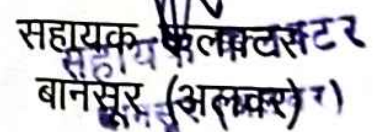 सहायक कलक्टर
बानसूर (अलवर)